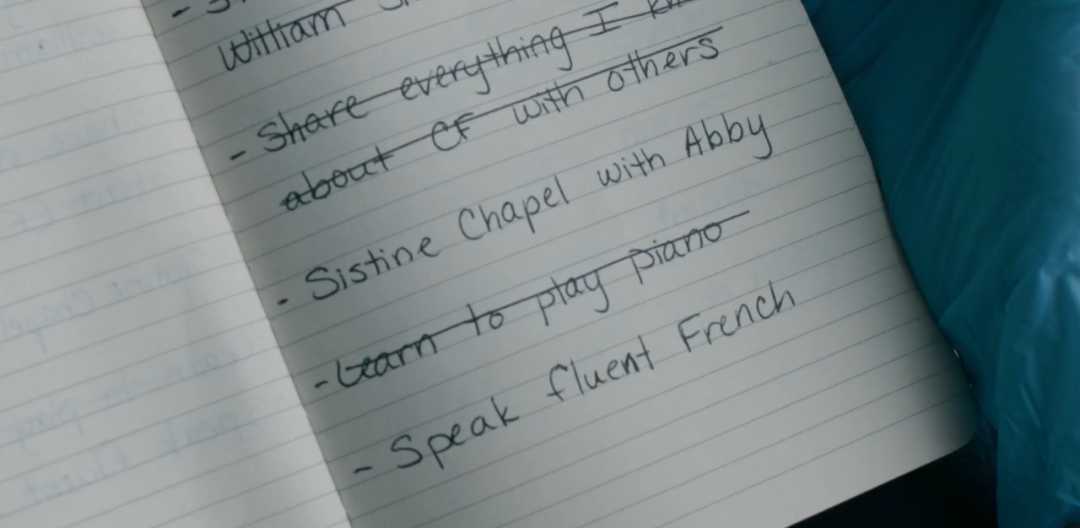 William
- Share everything I
about CF with others
- Sistine Chapel with Abby
- Learn to play piano
- Speak fluent French